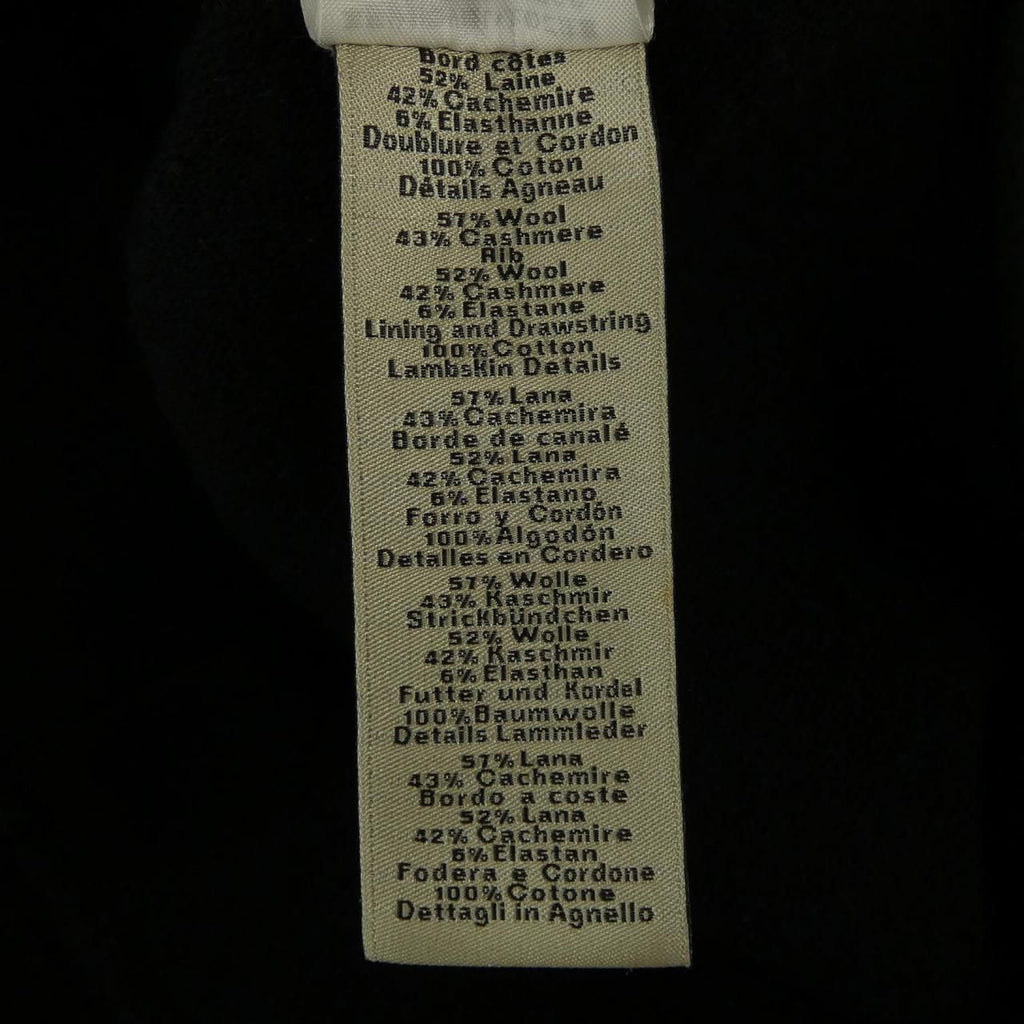 Bord côtes
52% Laine
42% Cachemire
6% Elasthanne
Doublure et Cordon
100% Coton
Détails Agneau
57% Wool
43% Cashmere
Rib
52% Wool
42% Cashmere
6% Elastane
Lining and Drawstring
100% Cotton
Lambskin Details
57% Lana
43% Cachemira
Borde de canalé
52% Lana
42% Cachemira
6% Elastano
Forro y Cordón
100% Algodón
Detalles en Cordero
57% Wolle
43% Kaschmir
Strickbündchen
52% Wolle
42% Kaschmir
6% Elasthan
Futter und Kordel
100% Baumwolle
Details Lammleder
57% Lana
43% Cachemire
Bordo a coste
52% Lana
42% Cachemire
6% Elastan
Fodera e Cordone
100% Cotone
Dettagli in Agnello